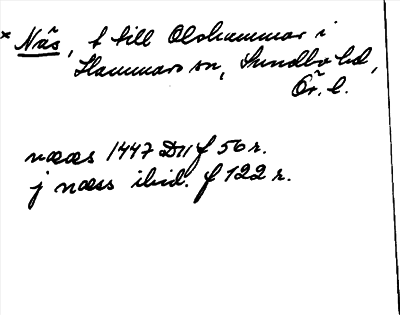 * Näs, t till Olshammar i
Hammars sn, Sundbo hd,
Ör. l.
næs 1447 D11 f 56 r.
j næss ibid. f 122 r.